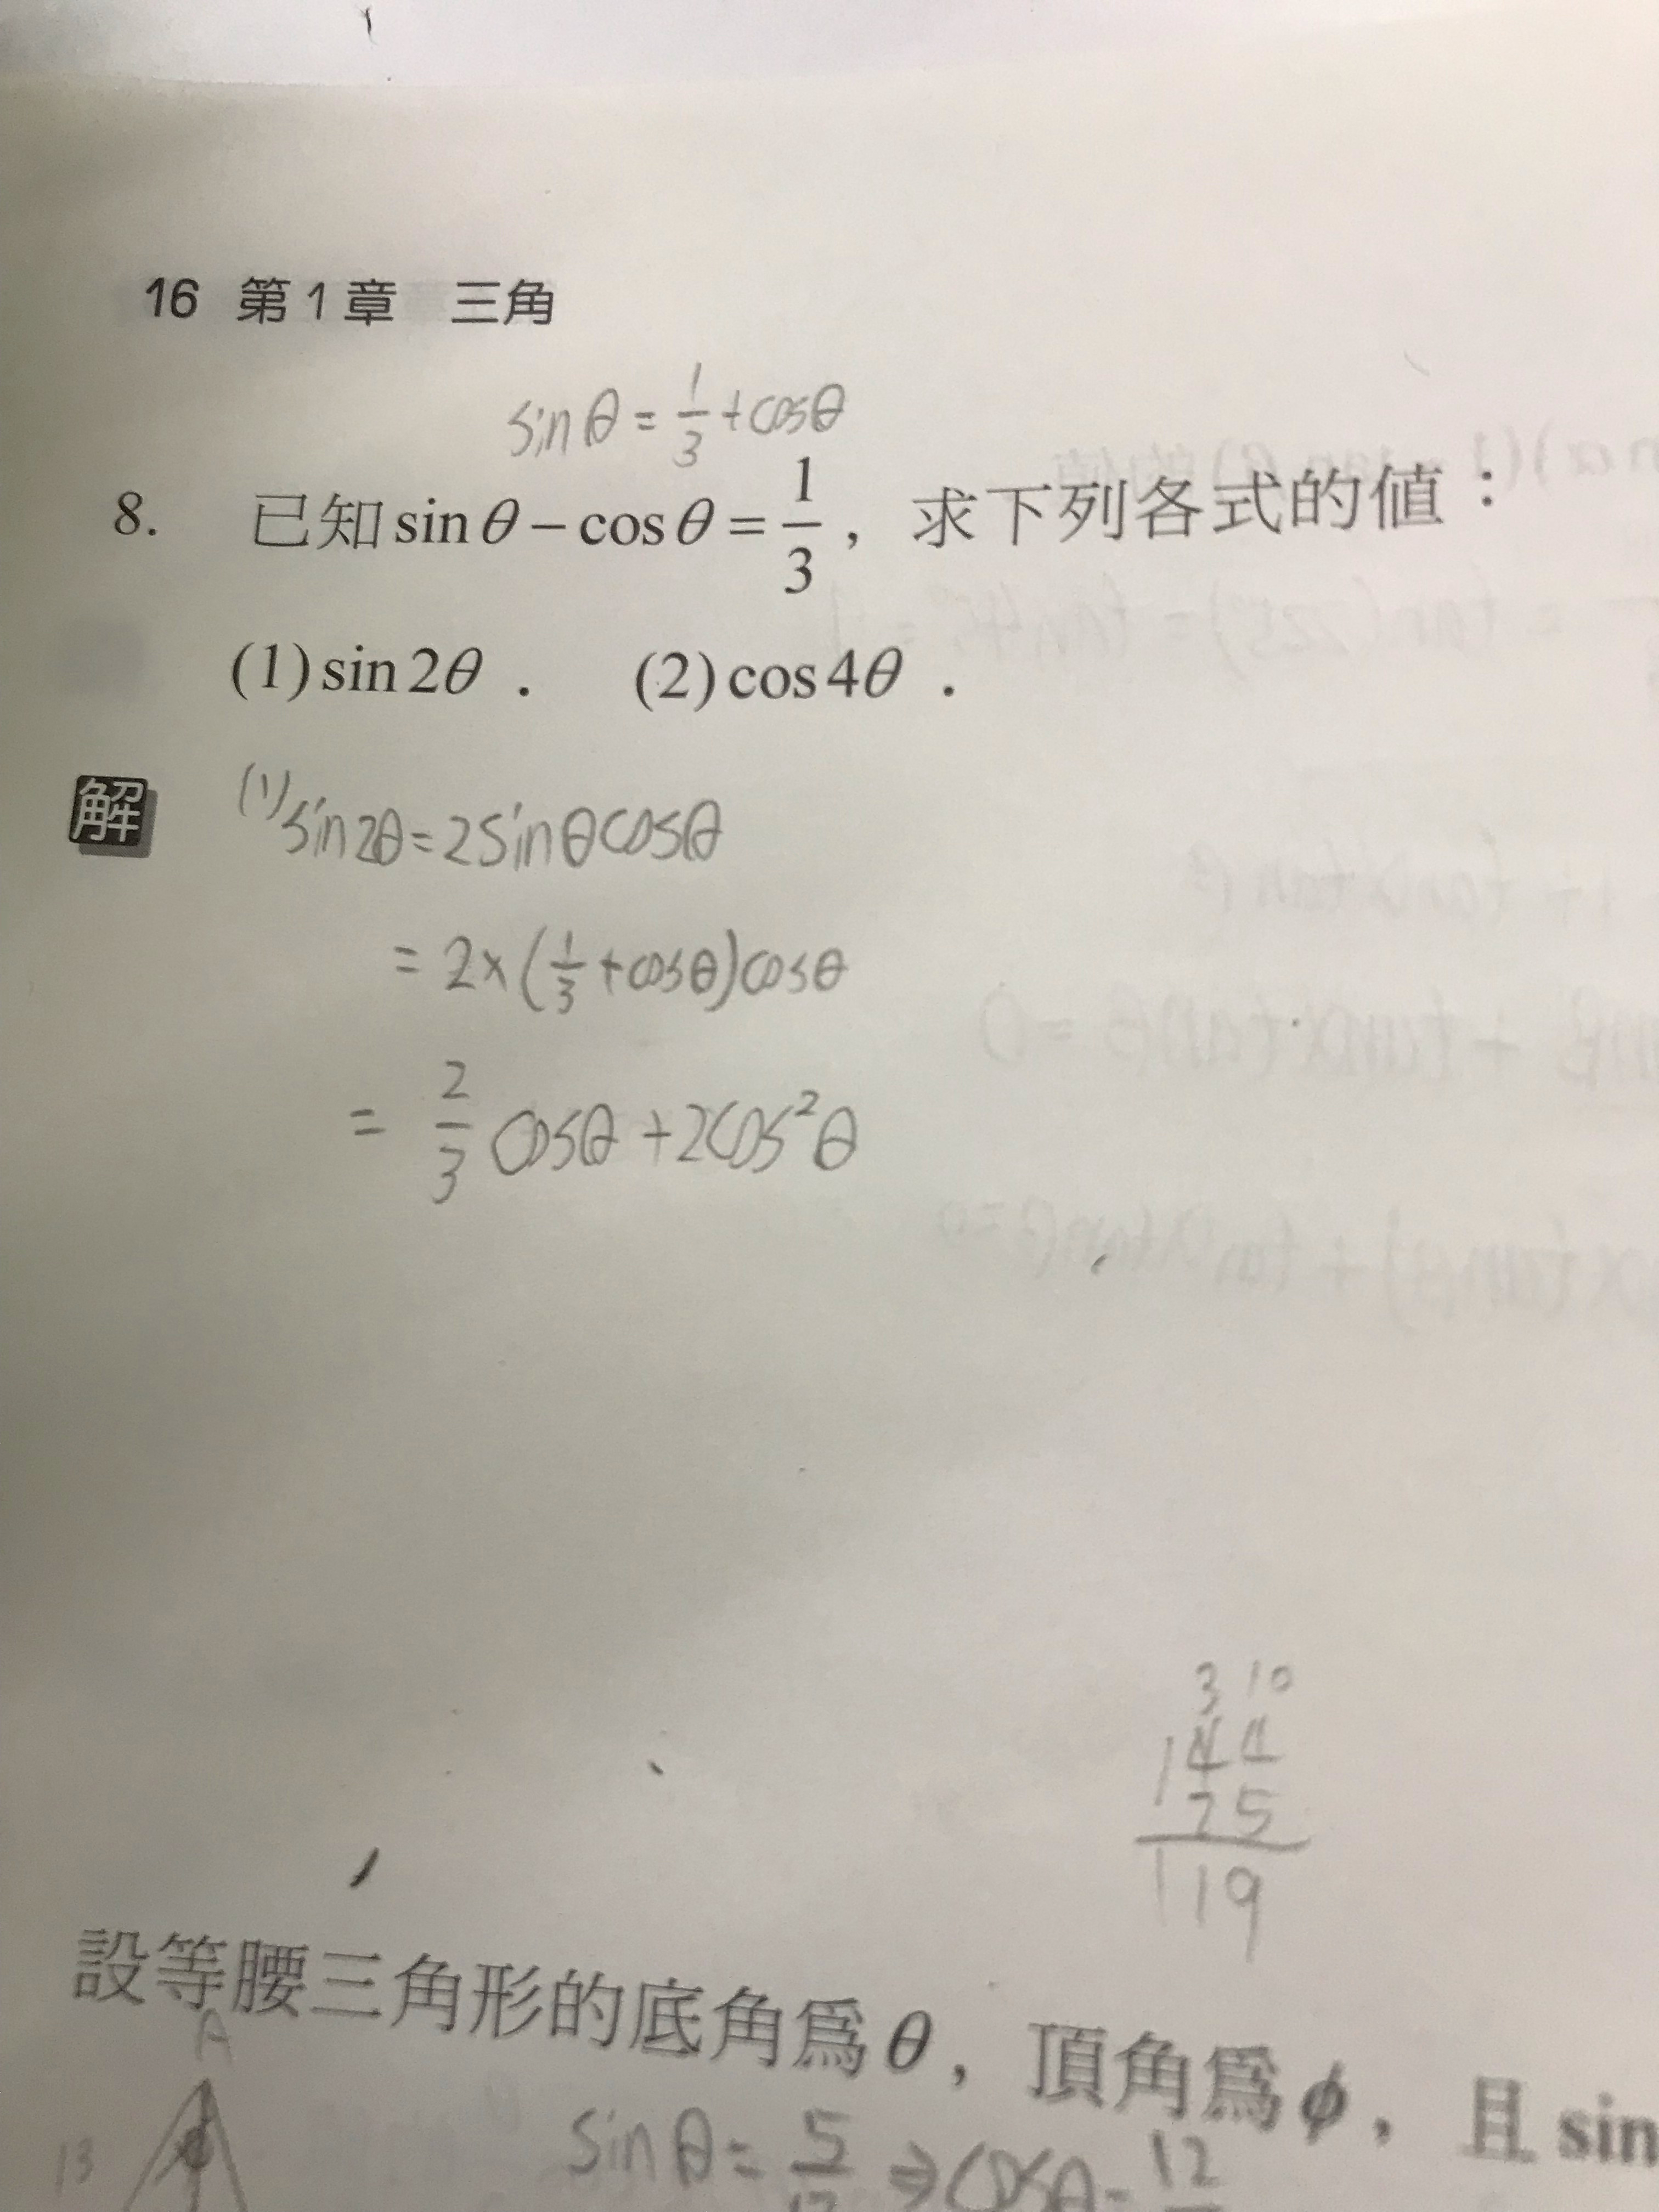 16 第1章 三角
sinθ = 1/3 + cosθ
8. 已知 sinθ − cosθ = 1/3，求下列各式的值：
(1) sin2θ． (2) cos4θ．
解 (1) sin2θ = 2sinθcosθ
= 2×(1/3 + cosθ)cosθ
= 2/3 cosθ + 2cos²θ
3 10
144
25
119
設等腰三角形的底角爲θ，頂角爲ϕ，且 sin
A
13
sinθ = 5/13 ⇒ cosθ = 12